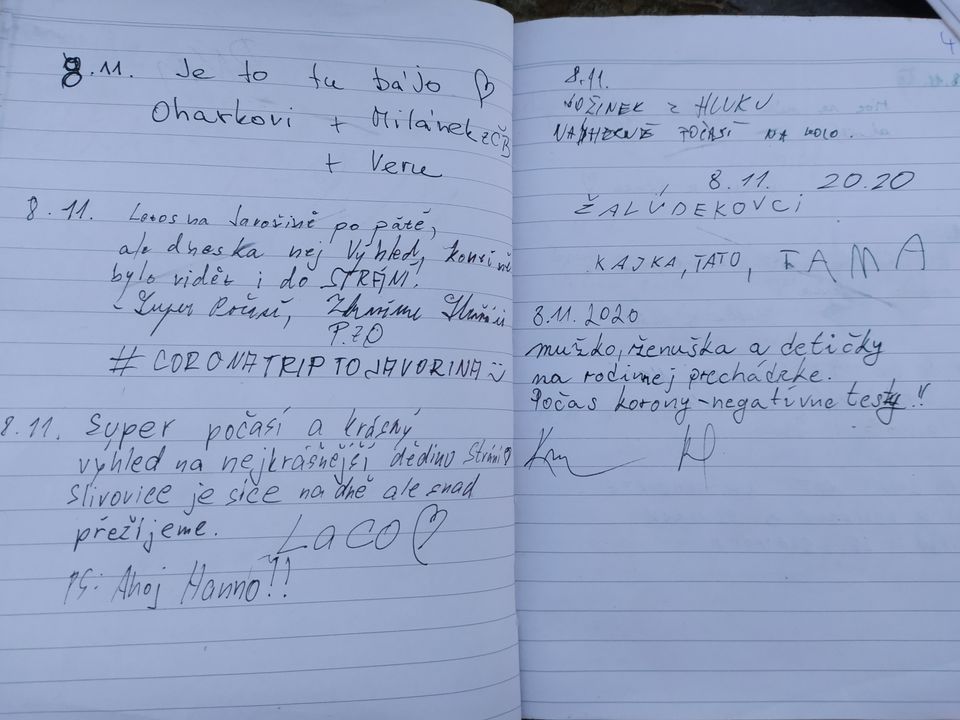 8.11. Je to tu bájo ♡
Oharkovi + Milánek z ČB
+ Veru
8.11. Letos na Javořině po páté,
ale dneska nej výhled, konečně
bylo vidět i do STRÁNÍ!
- Super Počasí, Zdravíme
P.Z.D
# CORONATRIPTOJAVORINA
8.11. Super počasí a krásný
vyhled na nejkrášnější dědino Strání
Slivovice je sice na dně ale snad
přežijeme. LACO ♡
PS: Ahoj Hanno!!
8.11.
JOŽINEK z HLUKU
NÁDHERNÉ POČASÍ NA KOLO.
8.11. 20.20
ŽALÚDEKOVCI
KAJKA, TATO, MAMA
8.11.2020
mužko, ženuška a detičky
na rodinnej prechádzke.
Počas korony - negatívne testy!!
4